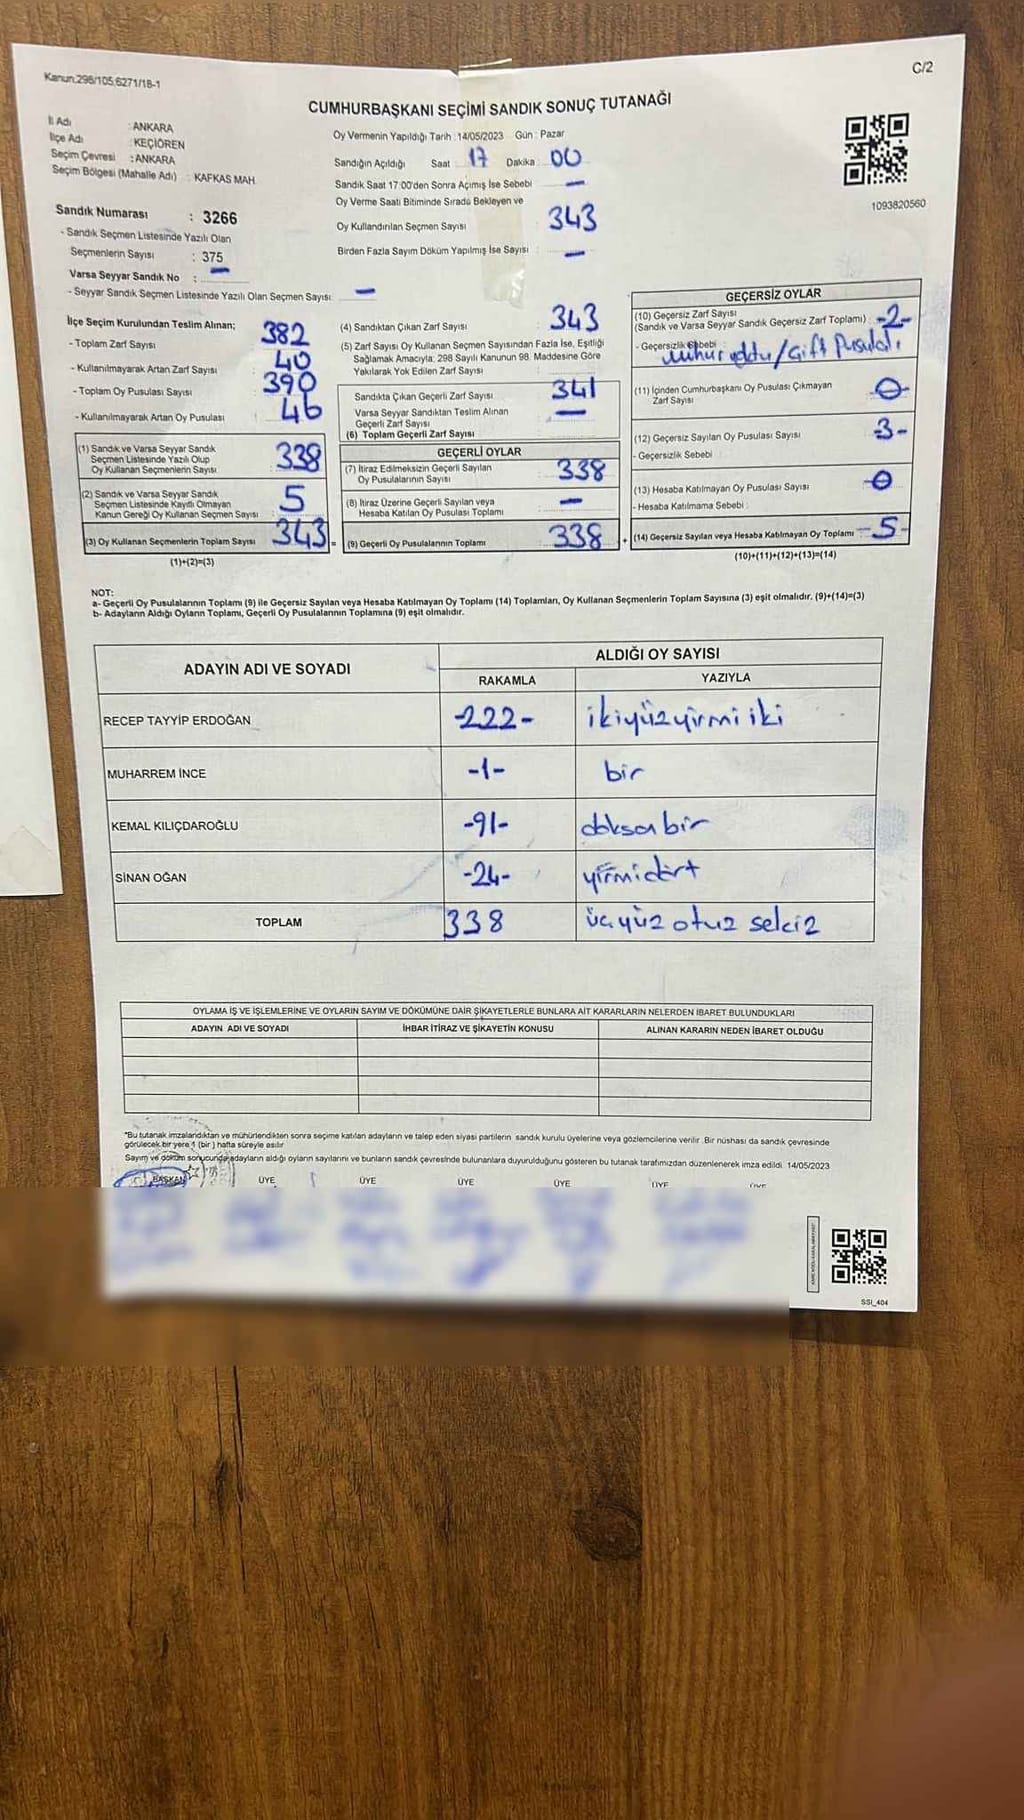 Kanun:298/105,6271/18-1
C/2
CUMHURBAŞKANI SEÇİMİ SANDIK SONUÇ TUTANAĞI
İl Adı : ANKARA
İlçe Adı : KEÇİÖREN
Seçim Çevresi : ANKARA
Seçim Bölgesi (Mahalle Adı) : KAFKAS MAH.
Sandık Numarası : 3266
- Sandık Seçmen Listesinde Yazılı Olan
Seçmenlerin Sayısı : 375
Varsa Seyyar Sandık No : —
- Seyyar Sandık Seçmen Listesinde Yazılı Olan Seçmen Sayısı: —
Oy Vermenin Yapıldığı Tarih : 14/05/2023 Gün : Pazar
Sandığın Açıldığı Saat 17 Dakika : 00
Sandık Saat 17:00'den Sonra Açımış İse Sebebi —
Oy Verme Saati Bitiminde Sırada Bekleyen ve
Oy Kullandırılan Seçmen Sayısı 343
Birden Fazla Sayım Döküm Yapılmış İse Sayısı : —
1093820560
İlçe Seçim Kurulundan Teslim Alınan;
- Toplam Zarf Sayısı 382
- Kullanılmayarak Artan Zarf Sayısı 40
- Toplam Oy Pusulası Sayısı 390
- Kullanılmayarak Artan Oy Pusulası 46
(1) Sandık ve Varsa Seyyar Sandık
Seçmen Listesinde Yazılı Olup
Oy Kullanan Seçmenlerin Sayısı 338
(2) Sandık ve Varsa Seyyar Sandık
Seçmen Listesinde Kayıtlı Olmayan
Kanun Gereği Oy Kullanan Seçmen Sayısı 5
(3) Oy Kullanan Seçmenlerin Toplam Sayısı 343
(1)+(2)=(3)
(4) Sandıktan Çıkan Zarf Sayısı : 343
(5) Zarf Sayısı Oy Kullanan Seçmen Sayısından Fazla İse, Eşitliği
Sağlamak Amacıyla; 298 Sayılı Kanunun 98. Maddesine Göre
Yakılarak Yok Edilen Zarf Sayısı
Sandıkta Çıkan Geçerli Zarf Sayısı 341
Varsa Seyyar Sandıktan Teslim Alınan
Geçerli Zarf Sayısı —
(6) Toplam Geçerli Zarf Sayısı
GEÇERLİ OYLAR
(7) İtiraz Edilmeksizin Geçerli Sayılan
Oy Pusulalarının Sayısı 338
(8) İtiraz Üzerine Geçerli Sayılan veya
Hesaba Katılan Oy Pusulası Toplamı —
= (9) Geçerli Oy Pusulalarının Toplamı 338 +
GEÇERSİZ OYLAR
(10) Geçersiz Zarf Sayısı
(Sandık ve Varsa Seyyar Sandık Geçersiz Zarf Toplamı) -2-
- Geçersizlik Sebebi
mühür yoktu/Çift Pusulalı
(11) İçinden Cumhurbaşkanı Oy Pusulası Çıkmayan
Zarf Sayısı 0
(12) Geçersiz Sayılan Oy Pusulası Sayısı -3-
- Geçersizlik Sebebi
(13) Hesaba Katılmayan Oy Pusulası Sayısı 0
- Hesaba Katılmama Sebebi :
(14) Geçersiz Sayılan veya Hesaba Katılmayan Oy Toplamı -5-
(10)+(11)+(12)+(13)=(14)
NOT:
a- Geçerli Oy Pusulalarının Toplamı (9) ile Geçersiz Sayılan veya Hesaba Katılmayan Oy Toplamı (14) Toplamları, Oy Kullanan Seçmenlerin Toplam Sayısına (3) eşit olmalıdır. (9)+(14)=(3)
b- Adayların Aldığı Oyların Toplamı, Geçerli Oy Pusulalarının Toplamına (9) eşit olmalıdır.
ADAYIN ADI VE SOYADI
ALDIĞI OY SAYISI
RAKAMLA YAZIYLA
RECEP TAYYİP ERDOĞAN -222- ikiyüzyirmi iki
MUHARREM İNCE -1- bir
KEMAL KILIÇDAROĞLU -91- doksanbir
SİNAN OĞAN -24- yirmidört
TOPLAM 338 üçyüz otuz sekiz
OYLAMA İŞ VE İŞLEMLERİNE VE OYLARIN SAYIM VE DÖKÜMÜNE DAİR ŞİKAYETLERLE BUNLARA AİT KARARLARIN NELERDEN İBARET BULUNDUKLARI
ADAYIN ADI VE SOYADI İHBAR İTİRAZ VE ŞİKAYETİN KONUSU ALINAN KARARIN NEDEN İBARET OLDUĞU
*Bu tutanak imzalandıktan ve mühürlendikten sonra seçime katılan adayların ve talep eden siyasi partilerin sandık kurulu üyelerine veya gözlemcilerine verilir .Bir nüshası da sandık çevresinde
görülecek bir yere 1 (bir ) hafta süreyle asılır
Sayım ve döküm sonucunda adayların aldığı oyların sayılarını ve bunların sandık çevresinde bulunanlara duyurulduğunu gösteren bu tutanak tarafımızdan düzenlenerek imza edildi. 14/05/2023
BAŞKAN ÜYE ÜYE ÜYE ÜYE ÜYE ÜYE
SSI_404